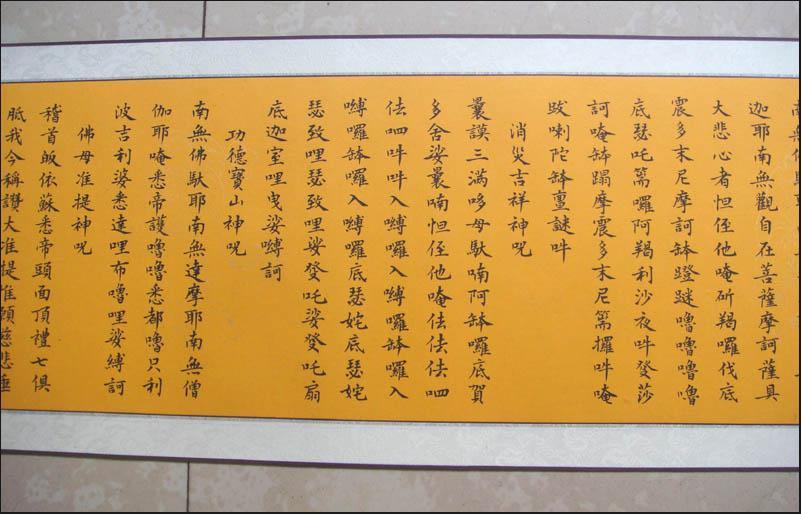 迦耶南無觀自在菩薩摩訶薩具
大悲心者怛侄他唵斫羯囉伐底
震多末尼摩訶缽蹬謎嚕嚕嚕嚕
底瑟吒篅囉阿羯利沙夜吽癹莎
訶唵缽蹋摩震多末尼篅攞吽唵
跋喇陀缽亶謎吽
消災吉祥神呪
曩謨三滿哆母馱喃阿缽囉底賀
多舍娑曩喃怛侄他唵佉佉佉呬
佉呬吽吽入嚩囉入嚩囉缽囉入
嚩囉缽囉入嚩囉底瑟姹底瑟姹
瑟致哩瑟致哩娑癹吒娑癹吒扇
底迦室哩曳娑嚩訶
功德寶山神呪
南無佛馱耶南無達摩耶南無僧
伽耶唵悉帝護嚕嚕悉都嚕只利
波吉利婆悉達哩布嚕哩娑縛訶
佛母准提神呪
稽首皈依蘇悉帝頭面頂禮七俱
胝我今稱讚大准提惟願慈悲垂